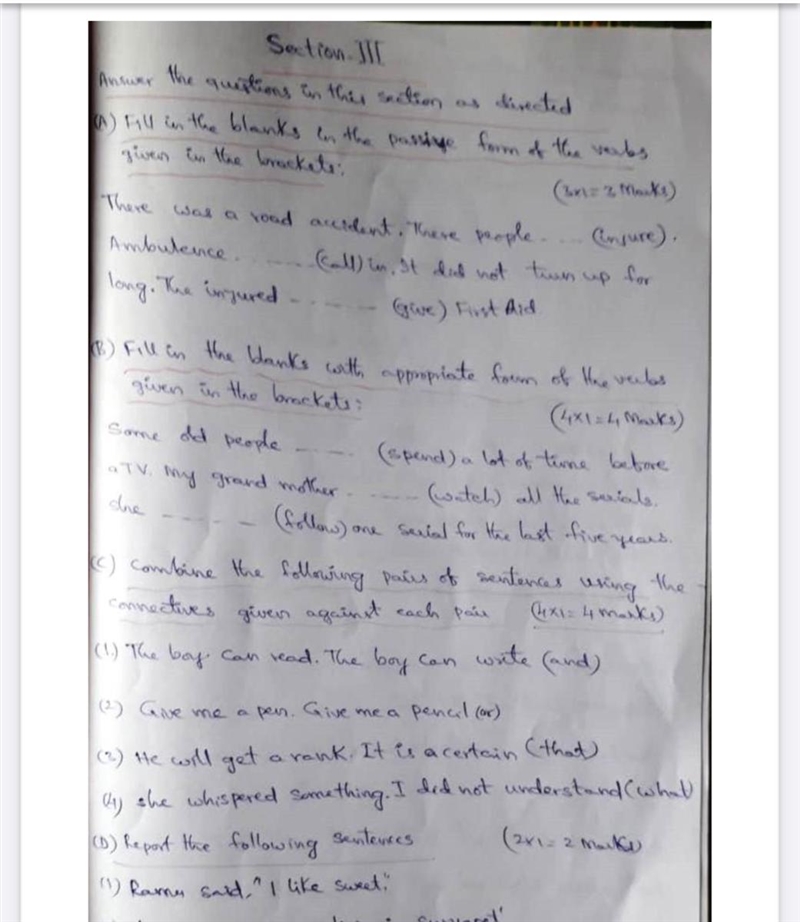 Section. III
Answer the questions in this section as directed
(A) Fill in the blanks in the passive form of the verbs
given in the brackets:
(3x1= 3 Marks)
There was a road accident. There people .... (injure).
Ambulence ....... (call) in. It did not turn up for
long. The injured ------- (give) First Aid
(B) Fill in the blanks with appropriate form of the verbs
given in the brackets:
(4x1=4 Marks)
Some old people ----- (spend) a lot of time before
a TV. My grand mother ...... (watch) all the serials.
she ----- (follow) one serial for the last five years.
(C) Combine the following pairs of sentences using the
connectives given against each pair (4x1=4 marks)
(1.) The boy can read. The boy can write (and)
(2) Give me a pen. Give me a pencil (or)
(3) He will get a rank. It is a certain (that)
(4) she whispered something. I did not understand (what)
(D) Report the following sentences (2x1= 2 marks)
(1) Ramu said, "I like sweet."